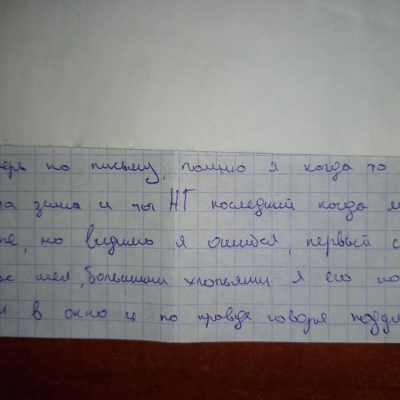 ерь по письму, помню я когда то
та зима и ты НГ последний когда м
те, но видимо я ошибся, первый с
ас шел, большими хлопьями я его по
и в окно и по правде говоря